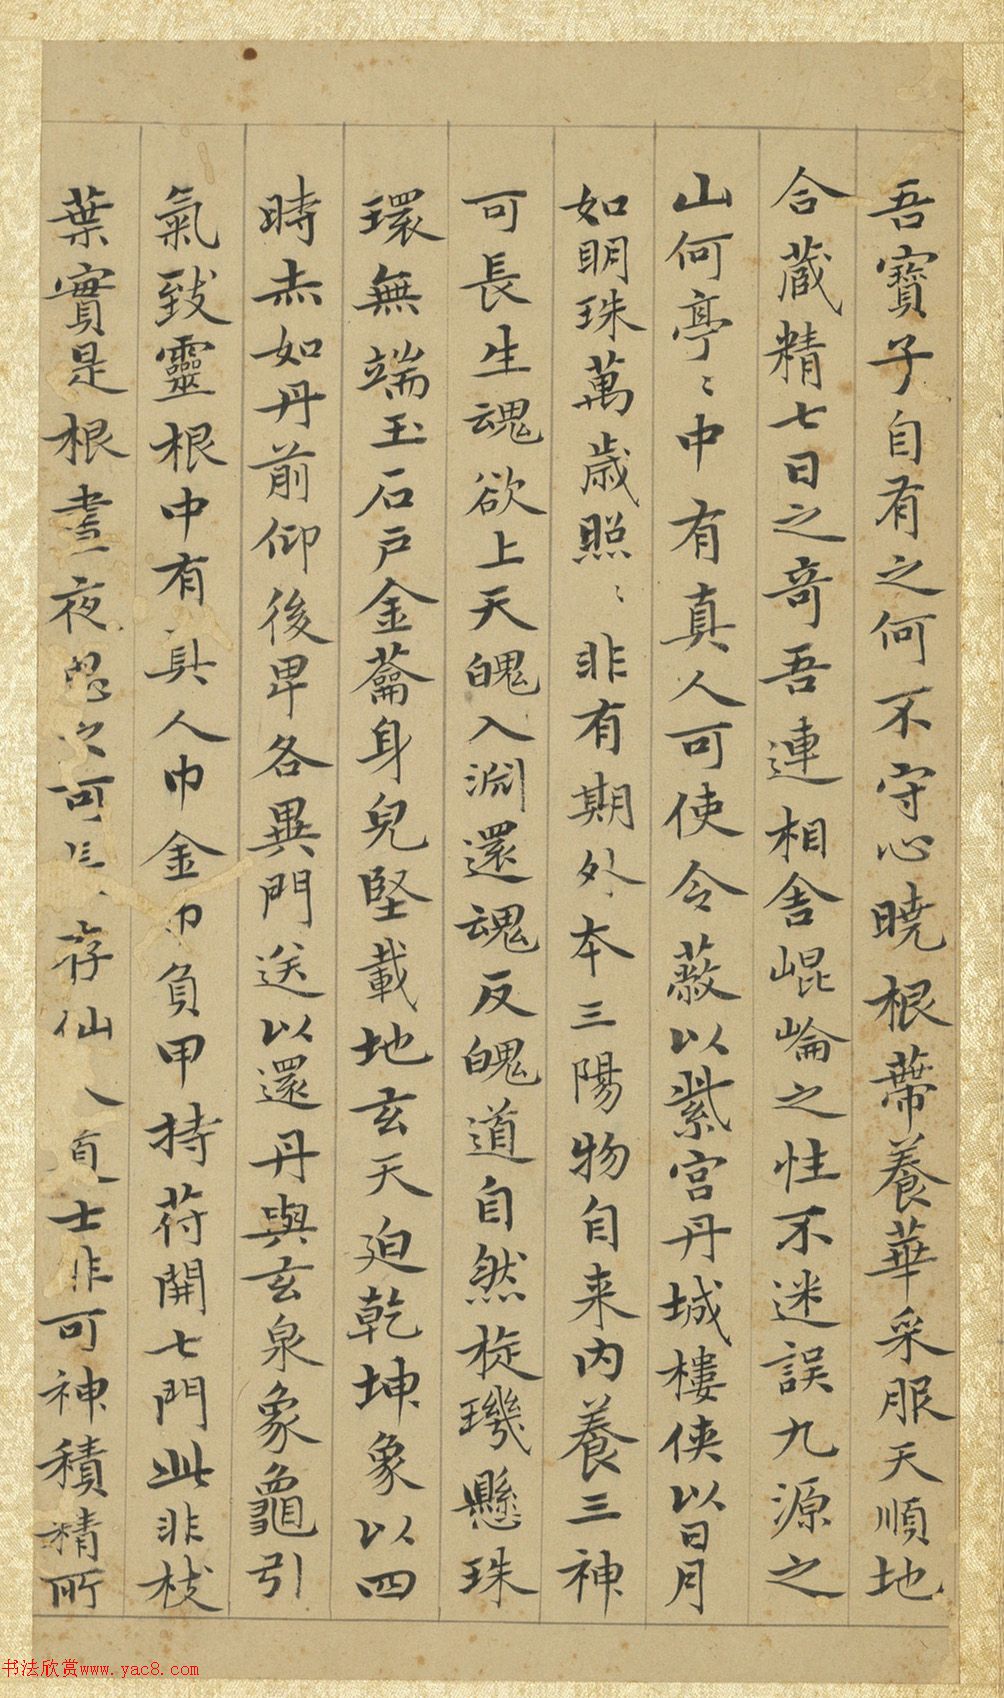 吾寶子自有之何不守心曉根蔕養華采服天順地
合藏精七日之奇吾連相舍崐崘之性不迷誤九源之
山何亭〻中有真人可使令蔽以紫宫丹城樓俠以日月
如明珠萬歲照〻非有期外本三陽物自来内養三神
可長生魂欲上天魄入淵還魂反魄道自然旋璣懸珠
環無端玉石戶金蘥身皃堅載地玄天迫乾坤象以四
時赤如丹前仰後卑各異門送以還丹與玄泉象龜引
氣致靈根中有真人巾金巾負甲持苻開七門此非枝
葉實是根晝夜思之可長存仙人道士非可神積精所
书法欣赏www.yac8.com